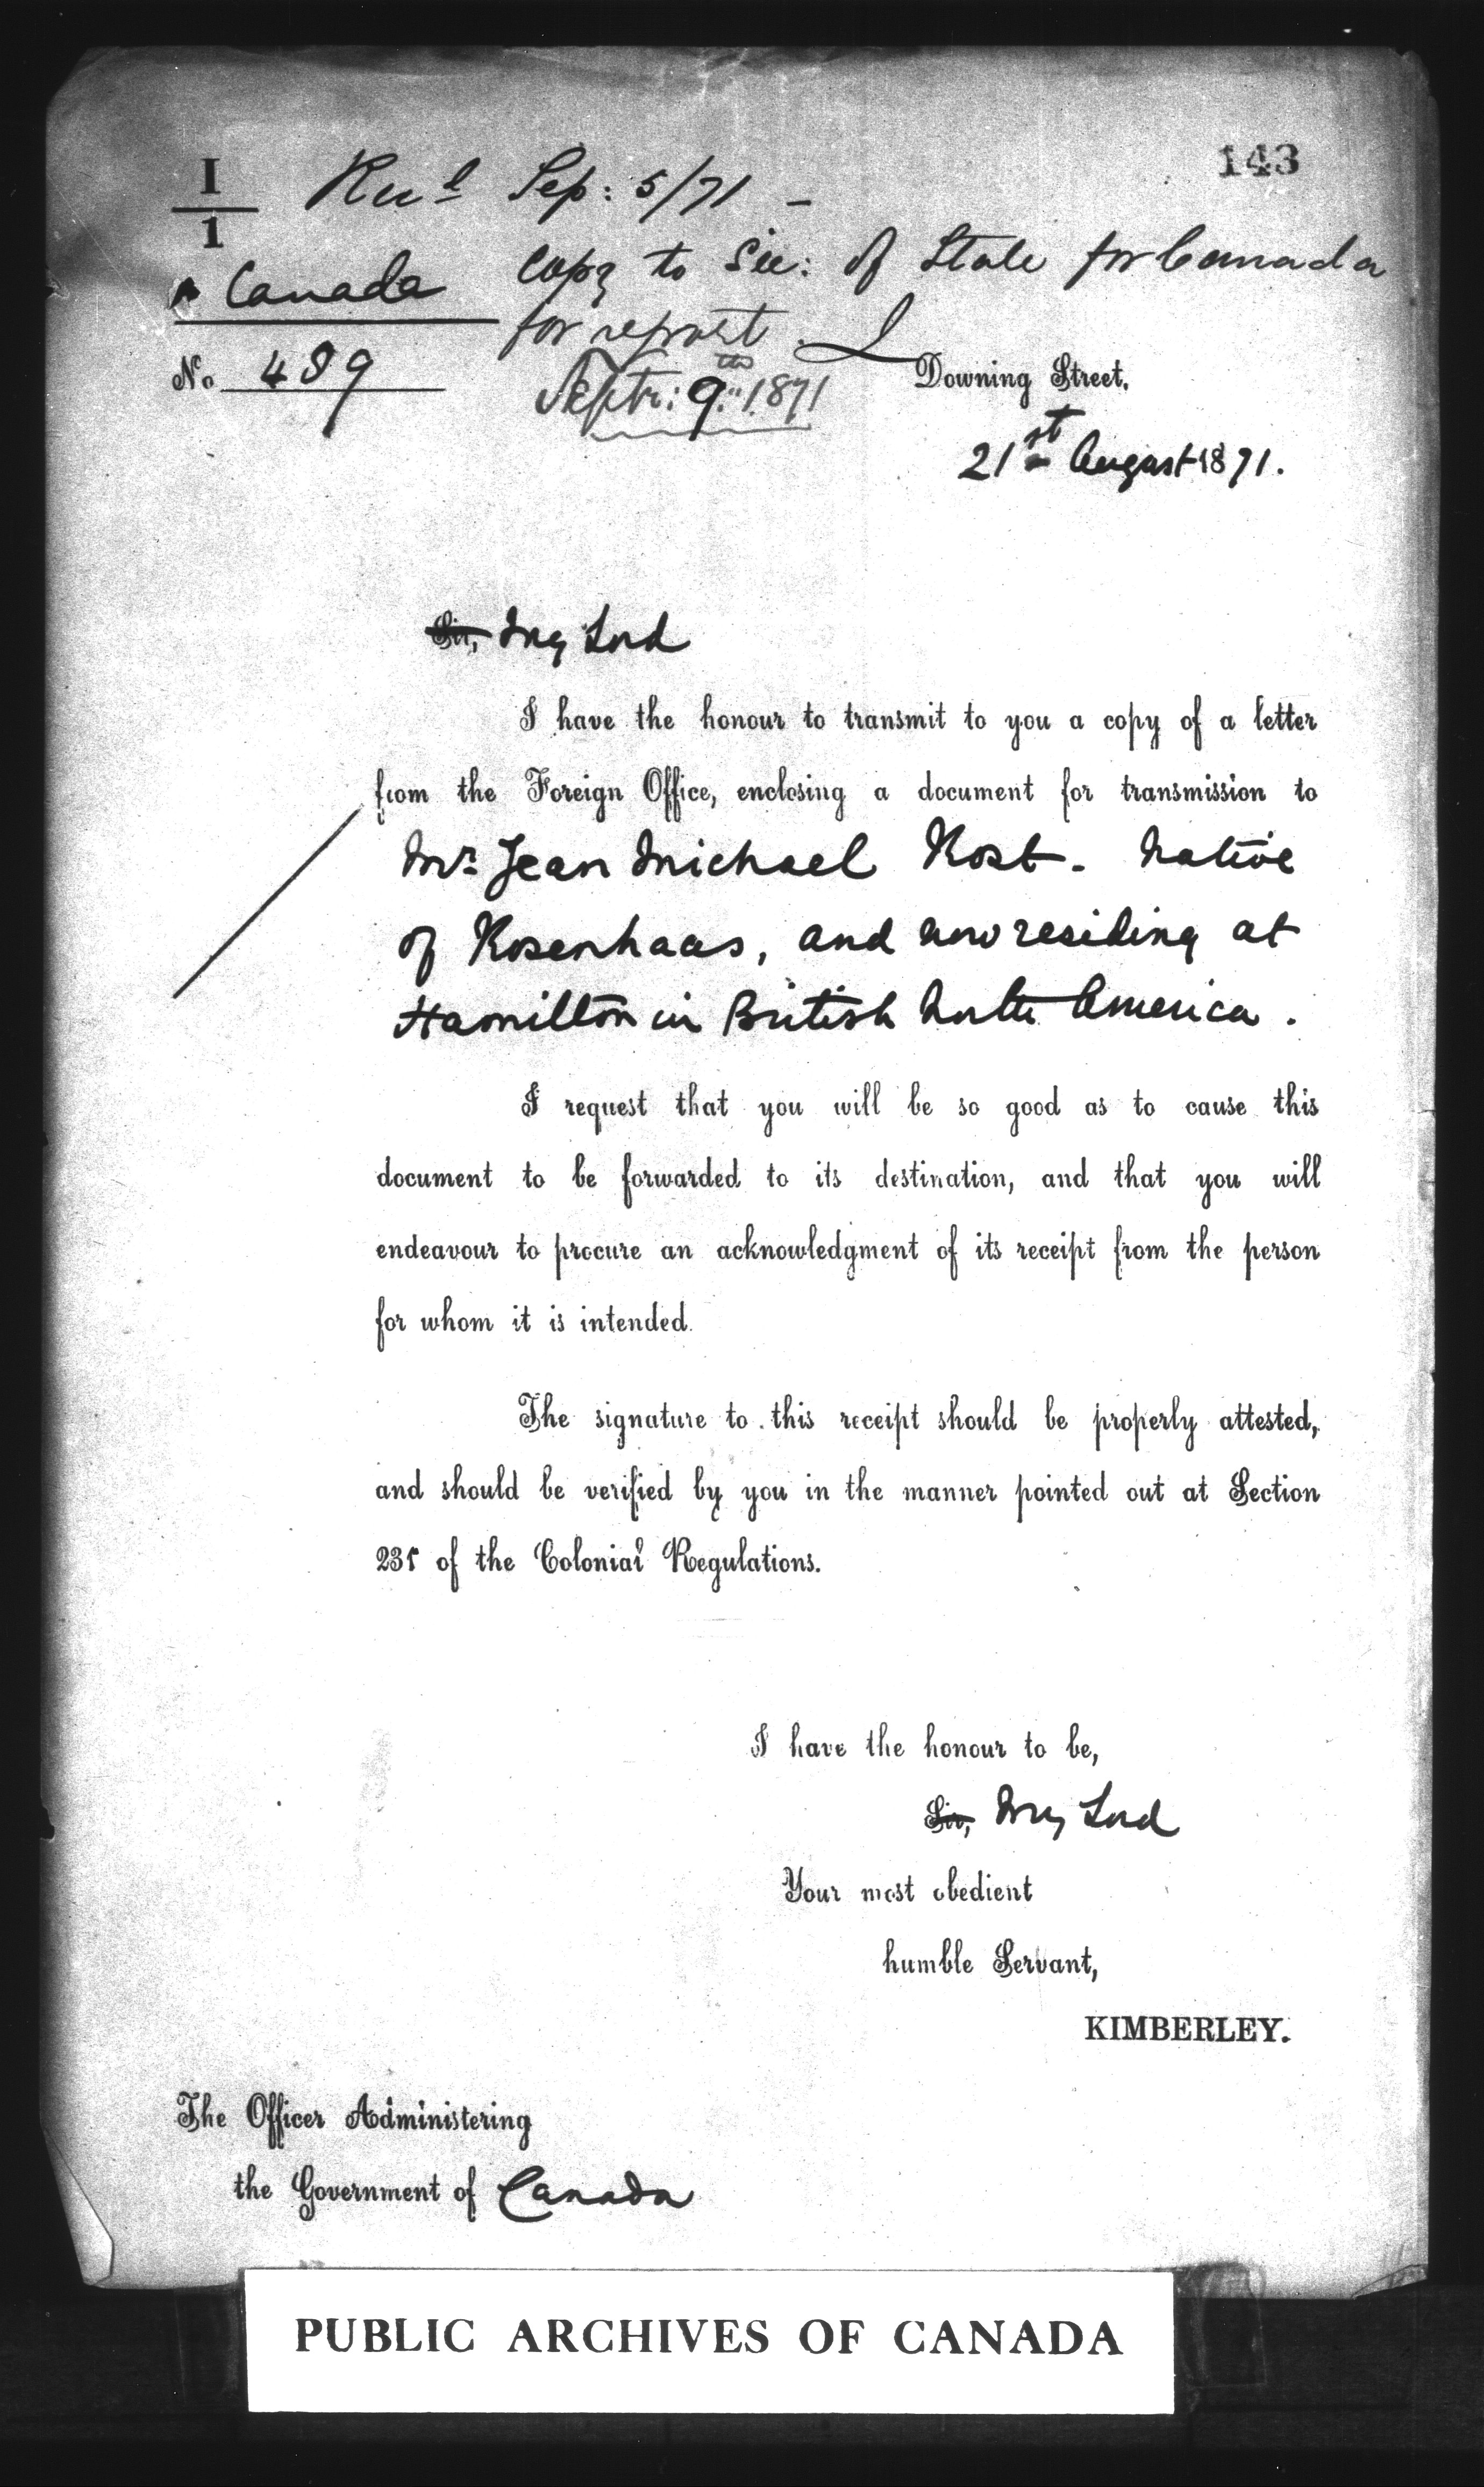 143
I
1
Recd Sep: 5/71 -
Canada
Copy to Sec: of State for Canada
for report. L
No 489
Septr: 9th 1871
Downing Street,
21st August 1871.
Sir, My Lord
I have the honour to transmit to you a copy of a letter
from the Foreign Office, enclosing a document for transmission to
Mr. Jean Michael Kost. Native
of Rosenhaas, and now residing at
Hamilton in British North America.
I request that you will be so good as to cause this
document to be forwarded to its destination, and that you will
endeavour to procure an acknowledgment of its receipt from the person
for whom it is intended.
The signature to this receipt should be properly attested,
and should be verified by you in the manner pointed out at Section
235 of the Colonial Regulations.
I have the honour to be,
Sir, My Lord
Your most obedient
humble Servant,
KIMBERLEY.
The Officer Administering
the Government of Canada
PUBLIC ARCHIVES OF CANADA